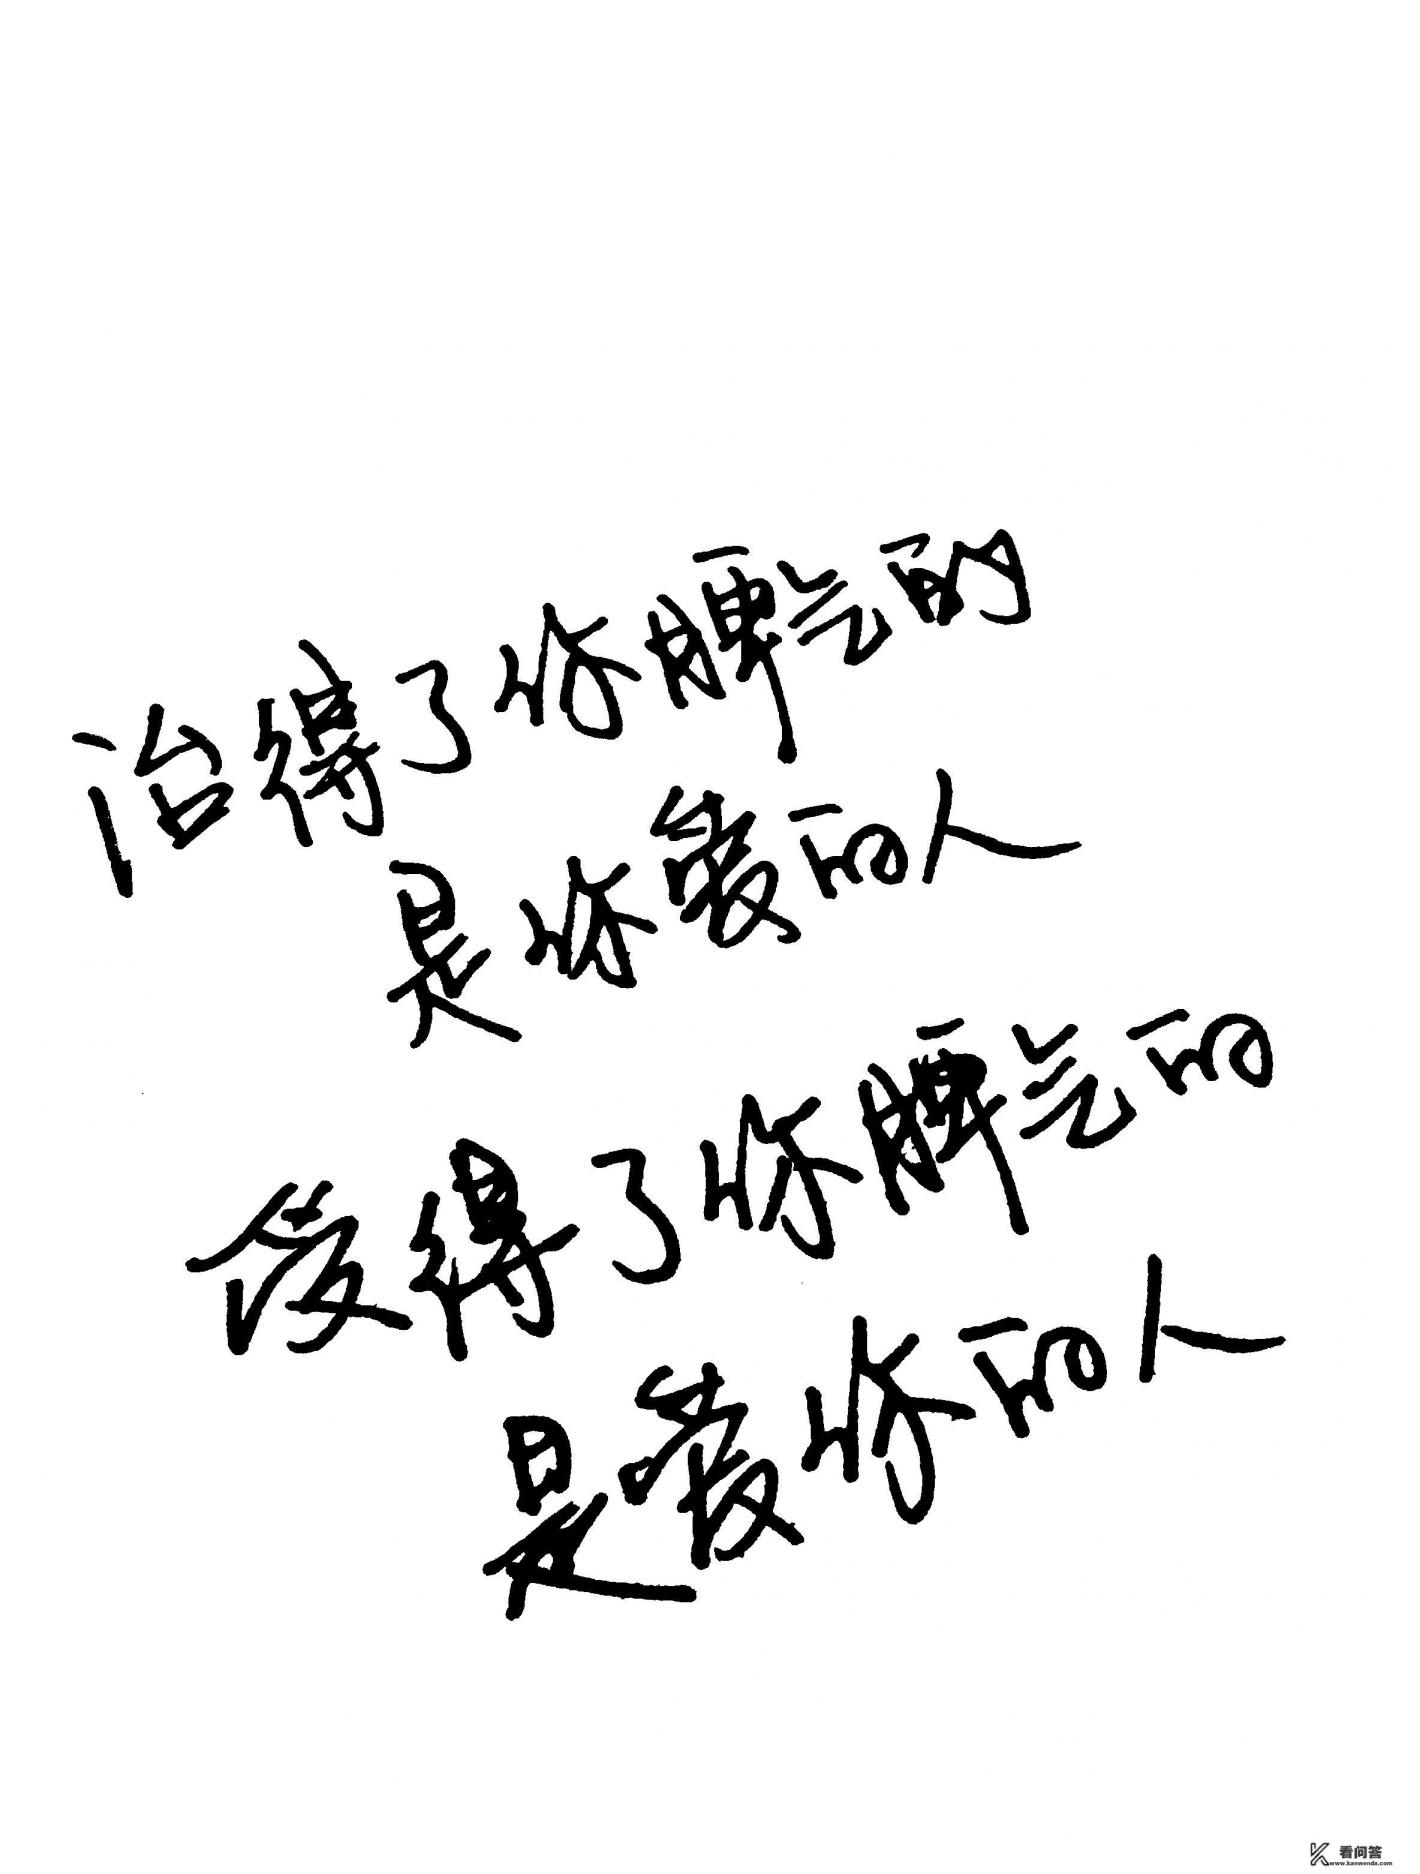 治得了你脾气的
是你爱的人
受得了你脾气的
是爱你的人
看问答
www.kanwenda.com